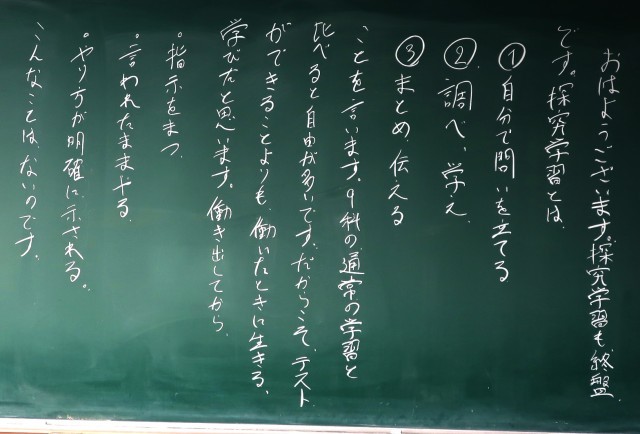 おはようございます。探究学習も終盤
です。探究学習とは、
①自分で問いを立てる
②調べ、学え、
③まとめ、伝える
ことを言います。9科の通常の学習と
比べると自由が多いです。だからこそ、テスト
ができることよりも、働いたときに生きる、
学びだと思います。働き出してから、
。指示をまつ
。言われたままやる。
。やり方が明確に示される。
こんなことはないのです。